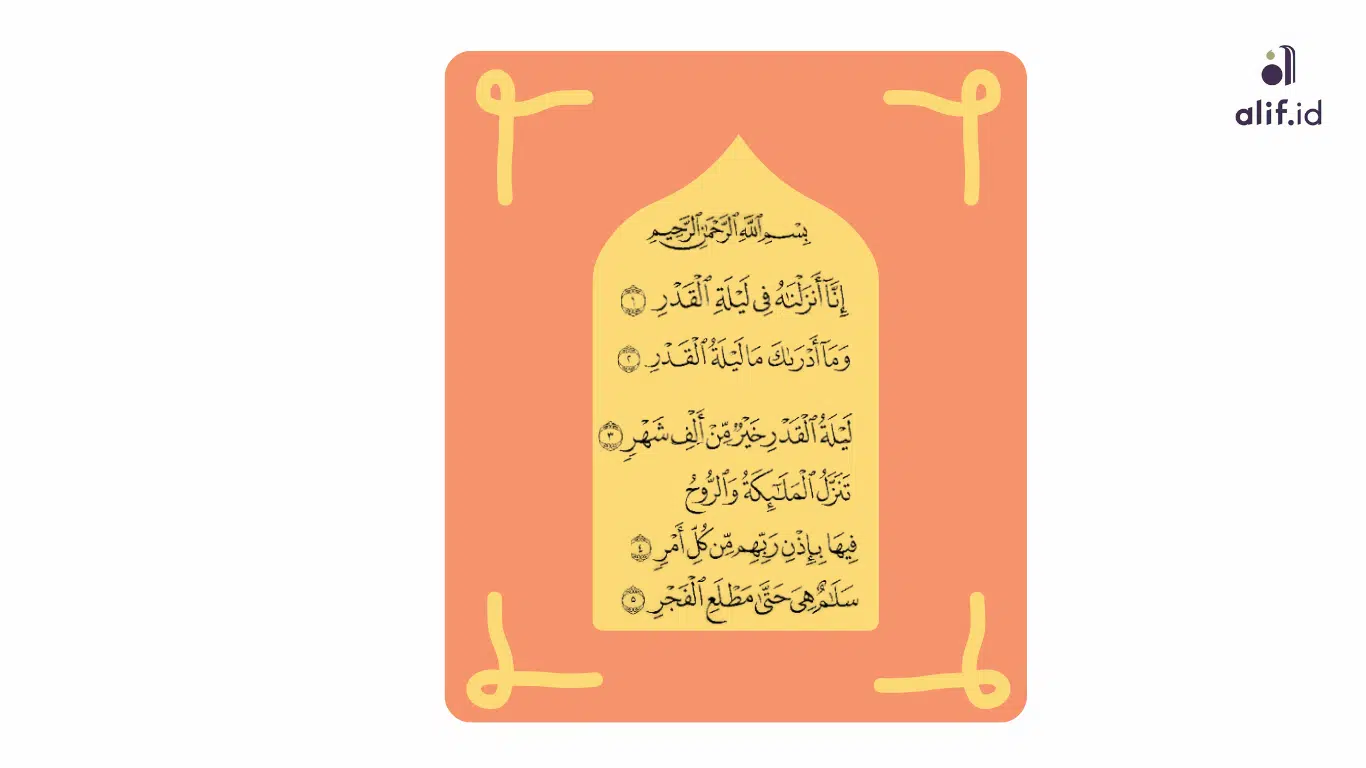 alif.id
بِسْمِ ٱللَّهِ ٱلرَّحْمَٰنِ ٱلرَّحِيمِ
إِنَّآ أَنزَلْنَٰهُ فِى لَيْلَةِ ٱلْقَدْرِ ١
وَمَآ أَدْرَىٰكَ مَا لَيْلَةُ ٱلْقَدْرِ ٢
لَيْلَةُ ٱلْقَدْرِ خَيْرٌ مِّنْ أَلْفِ شَهْرٍ ٣
تَنَزَّلُ ٱلْمَلَٰٓئِكَةُ وَٱلرُّوحُ
فِيهَا بِإِذْنِ رَبِّهِم مِّن كُلِّ أَمْرٍ ٤
سَلَٰمٌ هِىَ حَتَّىٰ مَطْلَعِ ٱلْفَجْرِ ٥